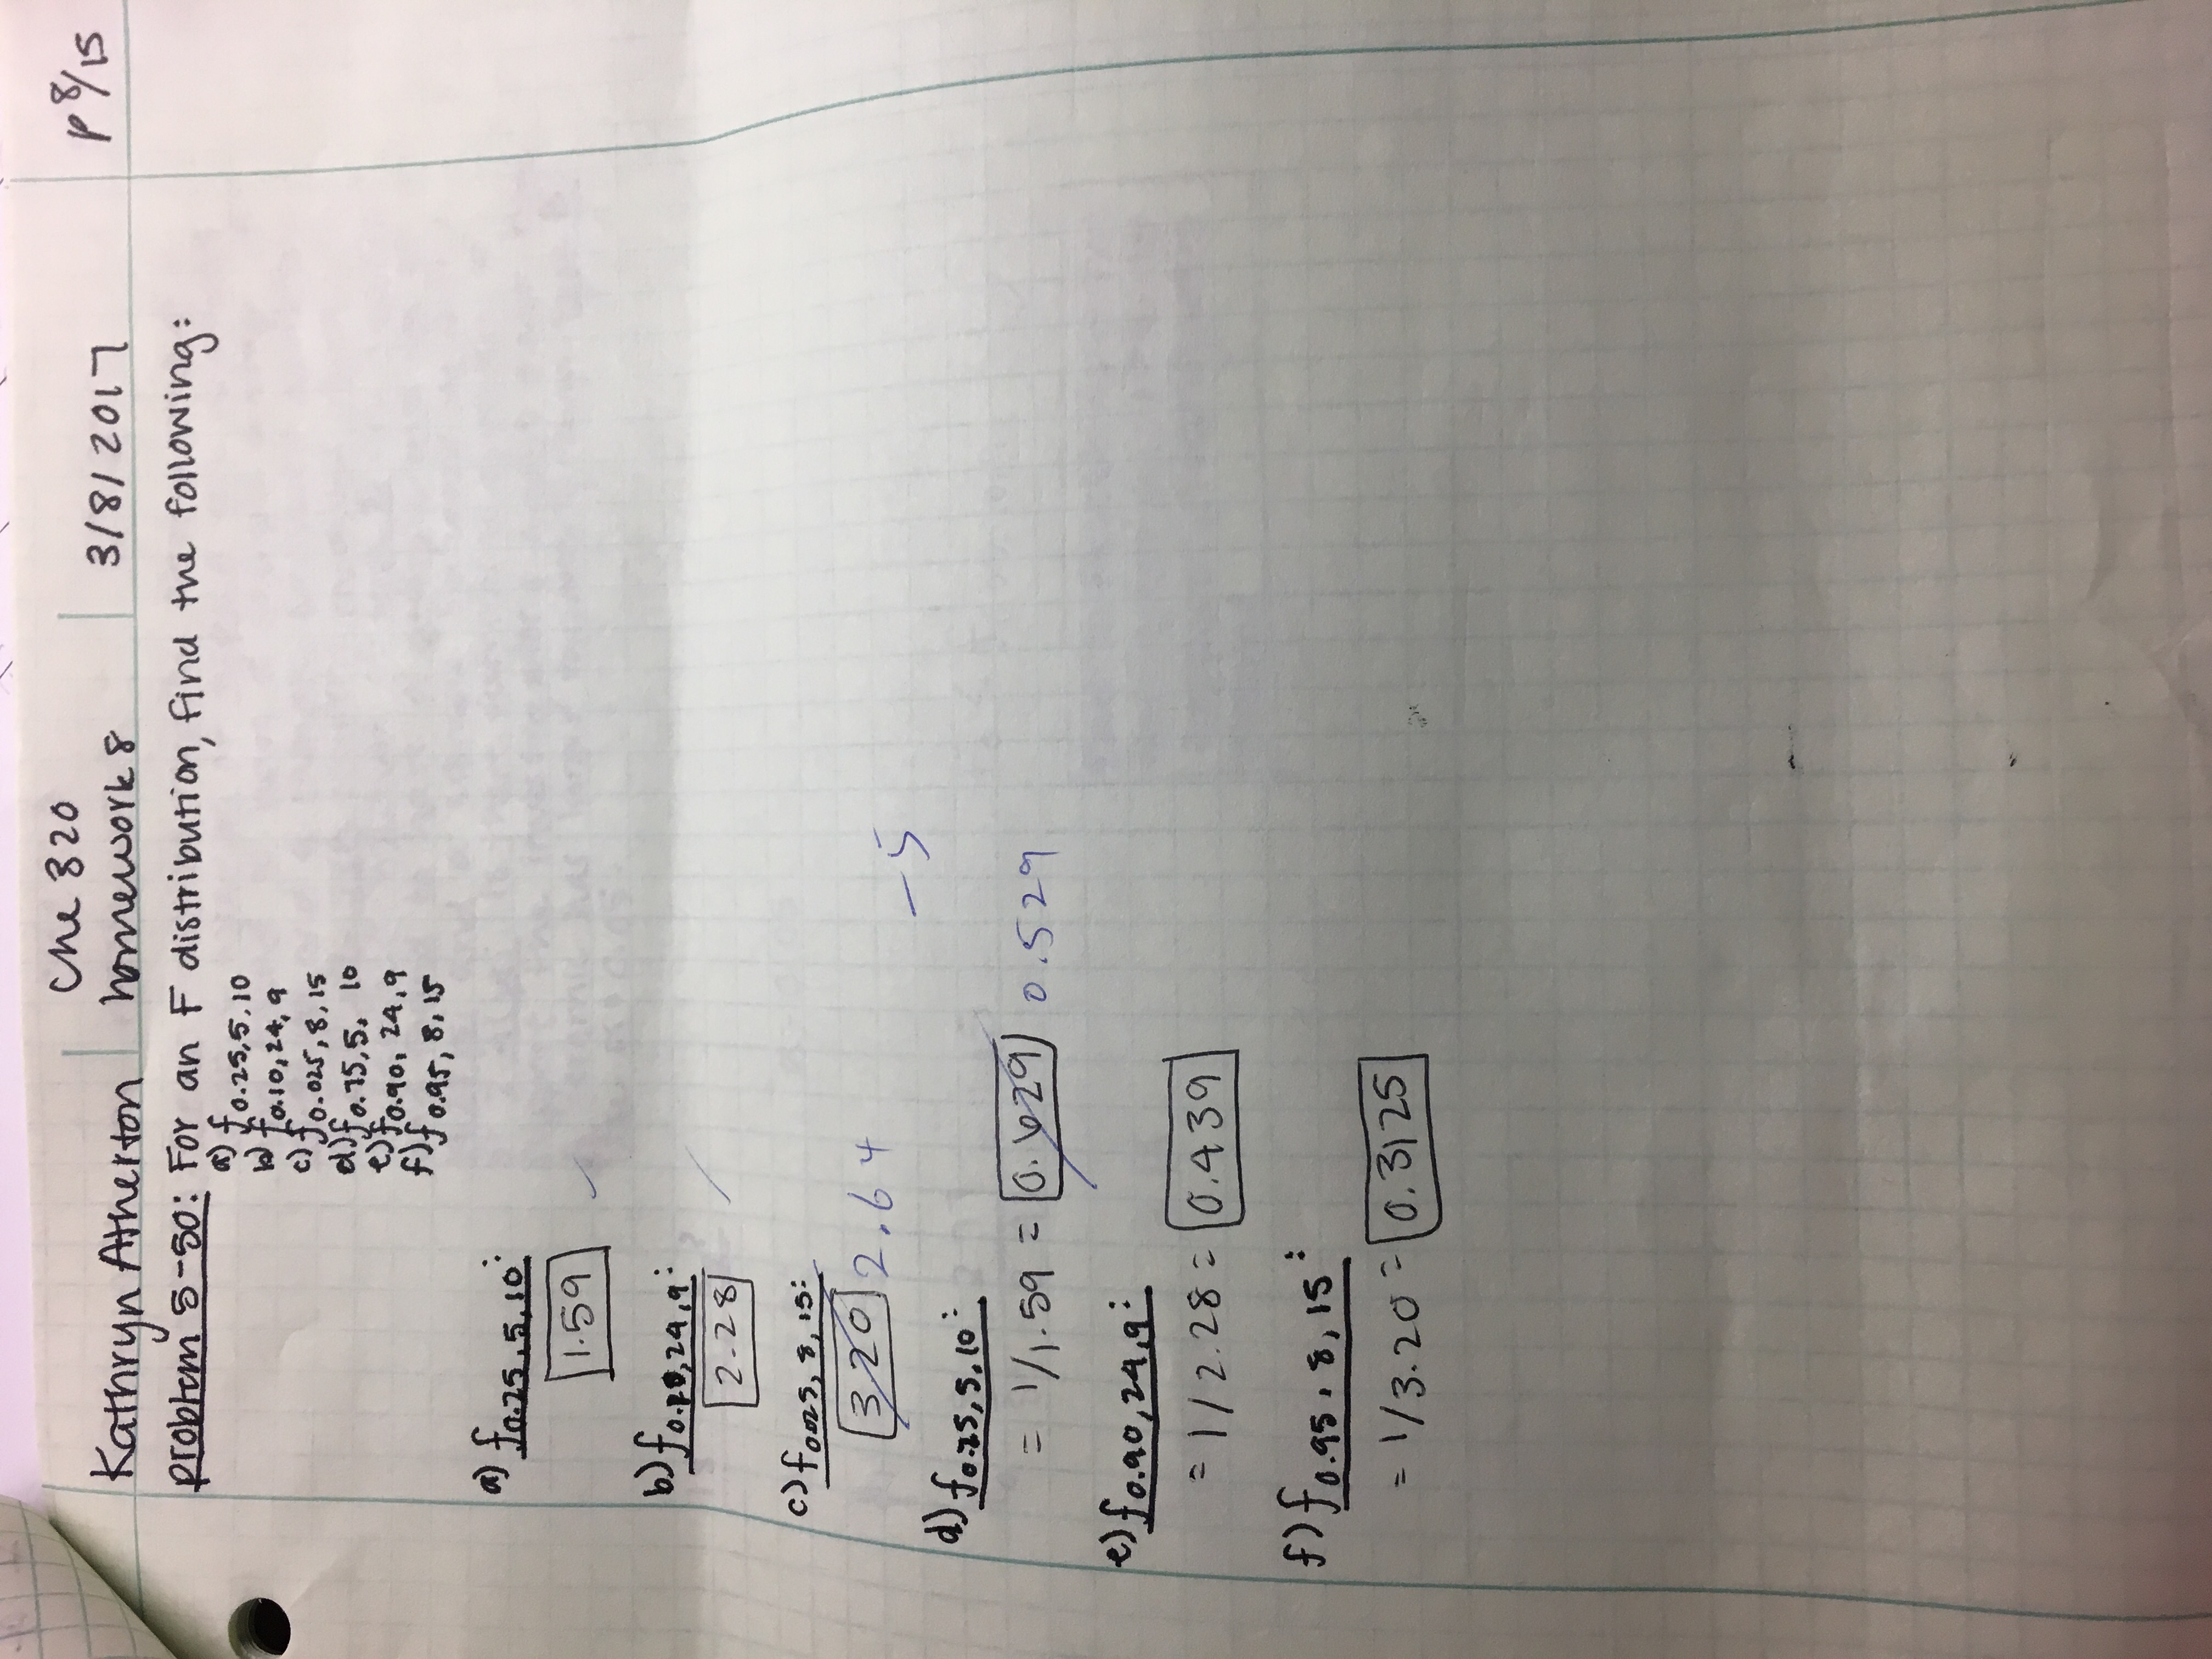 Che 320
Kathryn Atherton homework 8 3/8/2017 p 8/15
problem 5-50: For an F distribution, find the following:
a) f0.25, 5, 10
b) f0.10, 24, 9
c) f0.025, 8, 15
d) f0.75, 5, 10
e) f0.90, 24, 9
f) f0.95, 8, 15
a) f0.25, 5, 10:
1.59 ✓
b) f0.10, 24, 9:
2.28 ✓
c) f0.025, 8, 15:
3.20 2.64
-5
d) f0.75, 5, 10:
= 1/1.59 = 0.629 0.529
e) f0.90, 24, 9:
= 1/2.28 = 0.439
f) f0.95, 8, 15:
= 1/3.20 = 0.3125